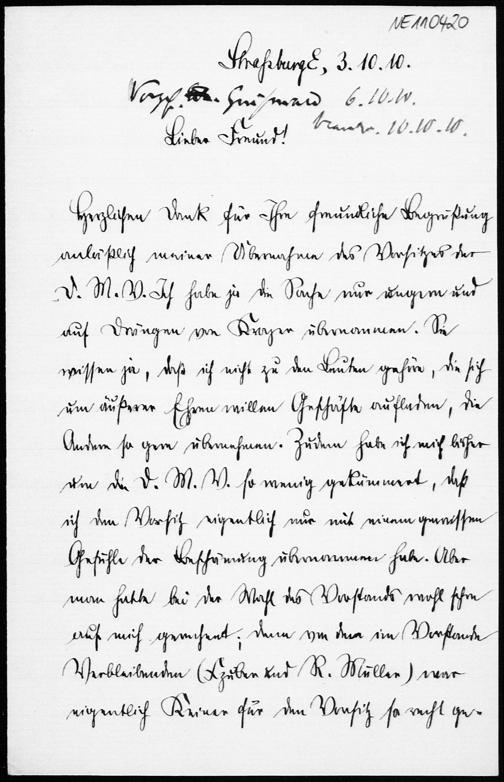 NE110420
Straßburg E, 3.10.10.
6.10.10.
10.10.10.
Lieber Freund!
Herzlichen Dank für Ihre freundliche Begrüßung
anläßlich meiner Übernahme des Vorsitzes der
D. M. V. Ich habe ja die Sache nur ungern und
auf Drängen von Krazer übernommen. Sie
wissen ja, daß ich nicht zu den Leuten gehöre, die sich
um äußerer Ehren willen Geschäfte aufladen, die
Andere so gern übernehmen. Zudem habe ich mich bisher
um die D. M. V. so wenig gekümmert, daß
ich den Vorsitz eigentlich nur mit einem gewissen
Gefühle der Beschämung übernommen habe. Aber
man hatte bei der Wahl des Vorstands wohl schon
auf mich gerechnet; denn von den im Vorstande
Verbleibenden (Czuber und R. Müller) war
eigentlich Keiner für den Vorsitz so recht ge-